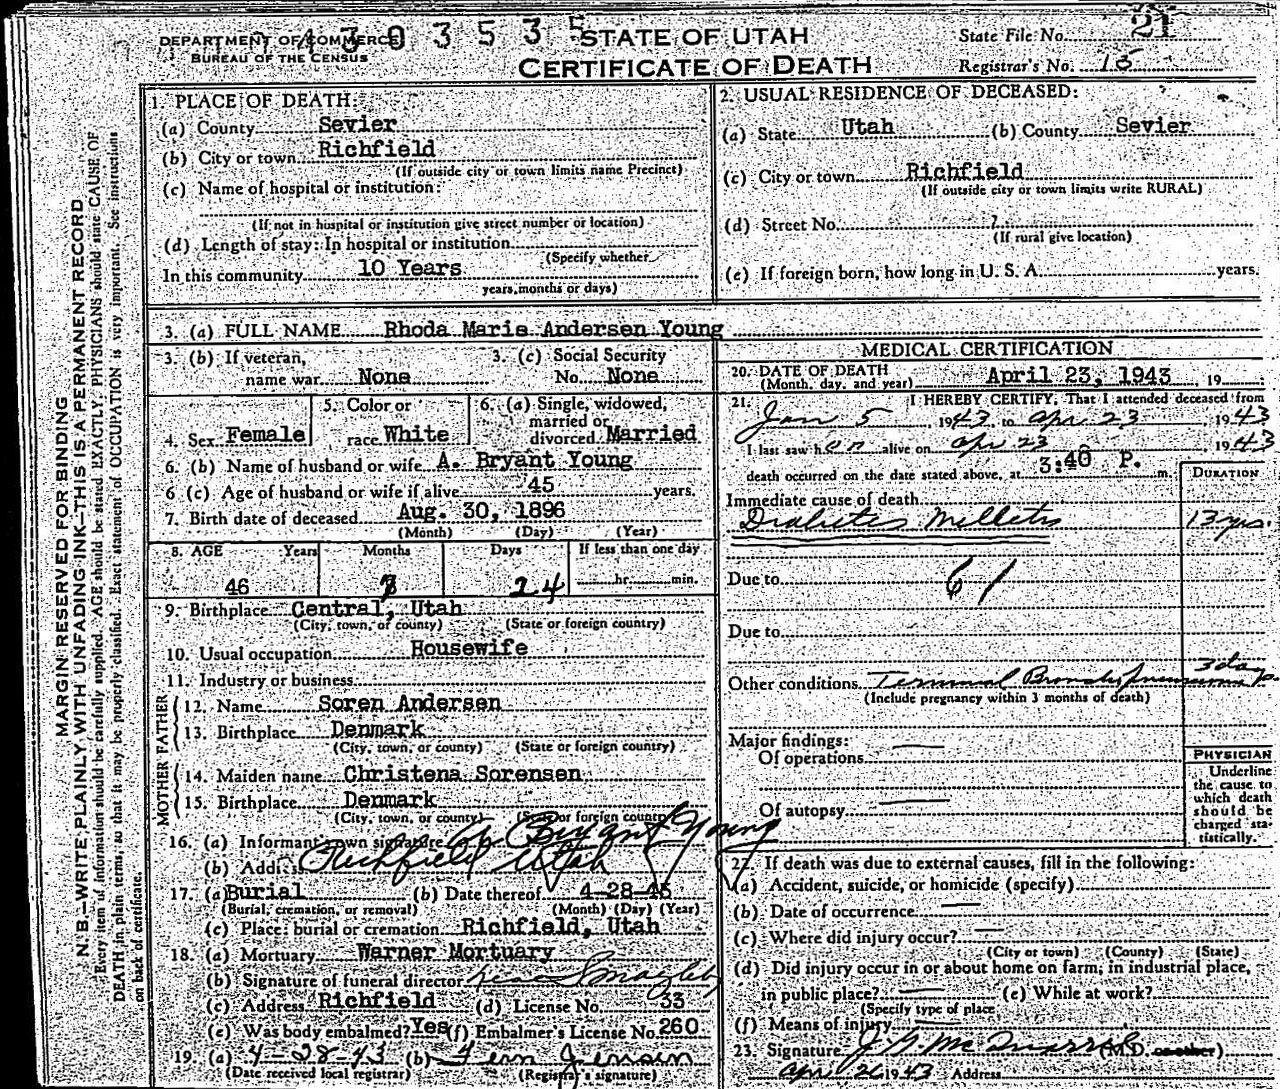 DEPARTMENT OF COMMERCE
BUREAU OF THE CENSUS
4303535
STATE OF UTAH
CERTIFICATE OF DEATH
State File No. 21
Registrar's No. 15
MARGIN RESERVED FOR BINDING
N. B.—WRITE PLAINLY WITH UNFADING INK—THIS IS A PERMANENT RECORD
Every item of information should be carefully supplied. AGE should be stated EXACTLY. PHYSICIANS should state CAUSE OF
DEATH in plain terms, so that it may be properly classified. Exact statement of OCCUPATION is very important. See instructions
on back of certificate.
1. PLACE OF DEATH:
(a) County Sevier
(b) City or town Richfield
(If outside city or town limits name Precinct)
(c) Name of hospital or institution:
(If not in hospital or institution give street number or location)
(d) Length of stay: In hospital or institution
(Specify whether
In this community 10 Years
years, months or days)
2. USUAL RESIDENCE OF DECEASED:
(a) State Utah (b) County Sevier
(c) City or town Richfield
(If outside city or town limits write RURAL)
(d) Street No.
(If rural give location)
(e) If foreign born, how long in U. S. A. years.
3. (a) FULL NAME Rhoda Marie Andersen Young
3. (b) If veteran, name war None
3. (c) Social Security No. None
4. Sex Female
5. Color or race White
6. (a) Single, widowed, married or divorced Married
6. (b) Name of husband or wife A. Bryant Young
6 (c) Age of husband or wife if alive 45 years.
7. Birth date of deceased Aug. 30, 1896
(Month) (Day) (Year)
8. AGE Years Months Days If less than one day
46 7 24 hr. min.
9. Birthplace Central, Utah
(City, town, or county) (State or foreign country)
10. Usual occupation Housewife
11. Industry or business
FATHER
12. Name Soren Andersen
13. Birthplace Denmark
(City, town, or county) (State or foreign country)
MOTHER
14. Maiden name Christena Sorensen
15. Birthplace Denmark
(City, town, or county) (State or foreign country)
16. (a) Informant's own signature A. Bryant Young
(b) Address Richfield Utah
17. (a) Burial (b) Date thereof 4-28-43
(Burial, cremation, or removal) (Month) (Day) (Year)
(c) Place: burial or cremation Richfield, Utah
18. (a) Mortuary Warner Mortuary
(b) Signature of funeral director
(c) Address Richfield (d) License No. 33
(e) Was body embalmed? Yes (f) Embalmer's License No. 260
19. (a) 4-28-43 (b) Fern Jensen
(Date received local registrar) (Registrar's signature)
MEDICAL CERTIFICATION
20. DATE OF DEATH
(Month, day, and year) April 23, 1943, 19
21. I HEREBY CERTIFY, That I attended deceased from
Jan 5, 1943, to Apr 23, 1943
I last saw h er alive on Apr 23, 1943
death occurred on the date stated above, at 3:40 P. m.
DURATION
Immediate cause of death
Diabetes Mellitis 13 yrs.
Due to 61
Due to
Other conditions Terminal Bronchopneumonia 3 days
(Include pregnancy within 3 months of death)
Major findings:
Of operations —
Of autopsy —
PHYSICIAN
Underline
the cause to
which death
should be
charged sta-
tistically.
22. If death was due to external causes, fill in the following:
(a) Accident, suicide, or homicide (specify)
(b) Date of occurrence —
(c) Where did injury occur? —
(City or town) (County) (State)
(d) Did injury occur in or about home on farm, in industrial place,
in public place? — (e) While at work?
(Specify type of place
(f) Means of injury —
23. Signature (M.D. or other)
Apr 26 1943 Address